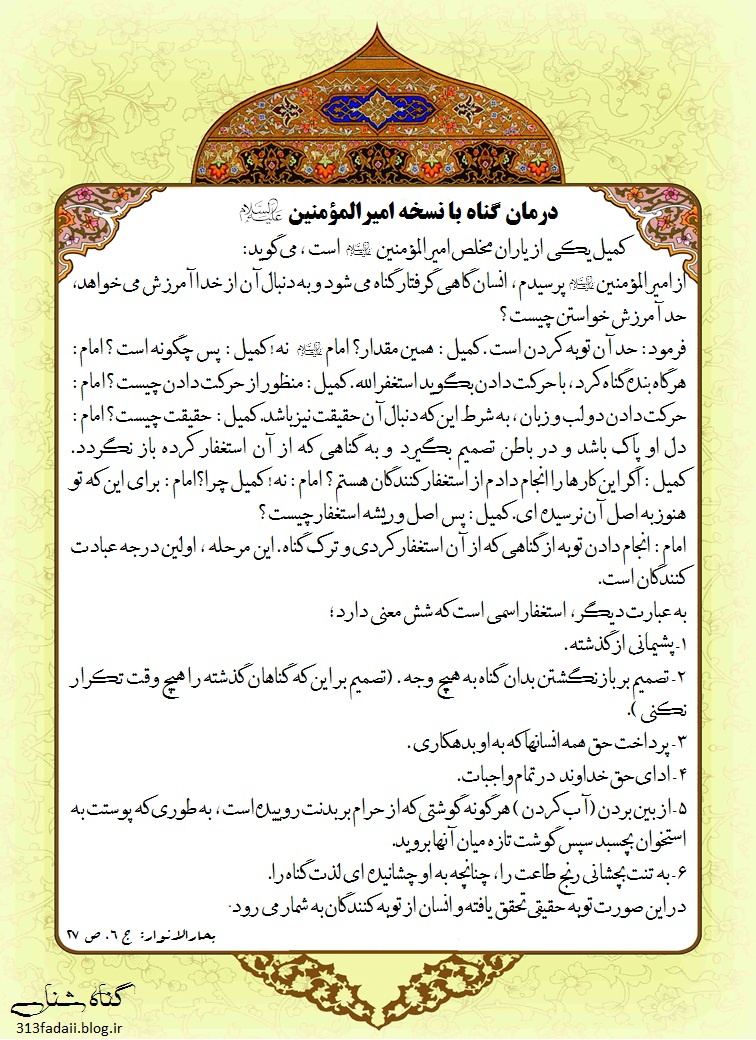 درمان گناه با نسخه امیرالمؤمنین علیه‌السلام
کمیل یکی از یاران مخلص امیرالمؤمنین علیه‌السلام است ، می‌گوید:
از امیرالمؤمنین علیه‌السلام پرسیدم ، انسان گاهی گرفتار گناه می شود و به دنبال آن از خدا آمرزش می خواهد،
حد آمرزش خواستن چیست ؟
فرمود: حد آن توبه کردن است. کمیل : همین مقدار؟ امام علیه‌السلام نه! کمیل : پس چگونه است ؟ امام :
هرگاه بنده گناه کرد، با حرکت دادن بگوید استغفرالله. کمیل : منظور از حرکت دادن چیست ؟ امام :
حرکت دادن دو لب و زبان ، به شرط این که دنبال آن حقیقت نیز باشد. کمیل : حقیقت چیست ؟ امام :
دل او پاک باشد و در باطن تصمیم بگیرد و به گناهی که از آن استغفار کرده باز نگردد.
کمیل : اگر این کارها را انجام دادم از استغفارکنندگان هستم ؟ امام : نه! کمیل چرا؟ امام : برای این که تو
هنوز به اصل آن نرسیده ای. کمیل : پس اصل و ریشه استغفار چیست ؟
امام : انجام دادن توبه از گناهی که از آن استغفار کردی و ترک گناه . این مرحله ، اولین درجه عبادت
کنندگان است.
به عبارت دیگر، استغفار اسمی است که شش معنی دارد ؛
۱- پشیمانی از گذشته .
۲- تصمیم بر بازنگشتن بدان گناه به هیچ وجه . (تصمیم بر این که گناهان گذشته را هیچ وقت تکرار
نکنی ).
۳- پرداخت حق همه انسانها که به او بدهکاری .
۴- ادای حق خداوند در تمام واجبات.
۵- از بین بردن (آب کردن ) هرگونه گوشتی که از حرام بر بدنت روییده است ، به طوری که پوستت به
استخوان بچسبد سپس گوشت تازه میان آنها بروید.
۶- به تنت بچشانی رنج طاعت را ، چنانچه به او چشانیده ای لذت گناه را.
در این صورت توبه حقیقی تحقق یافته و انسان از توبه کنندگان به شمار می رود.
بحارالانوار: ج ۶. ص ۲۷
گناه شناسی
313fadaii.blog.ir